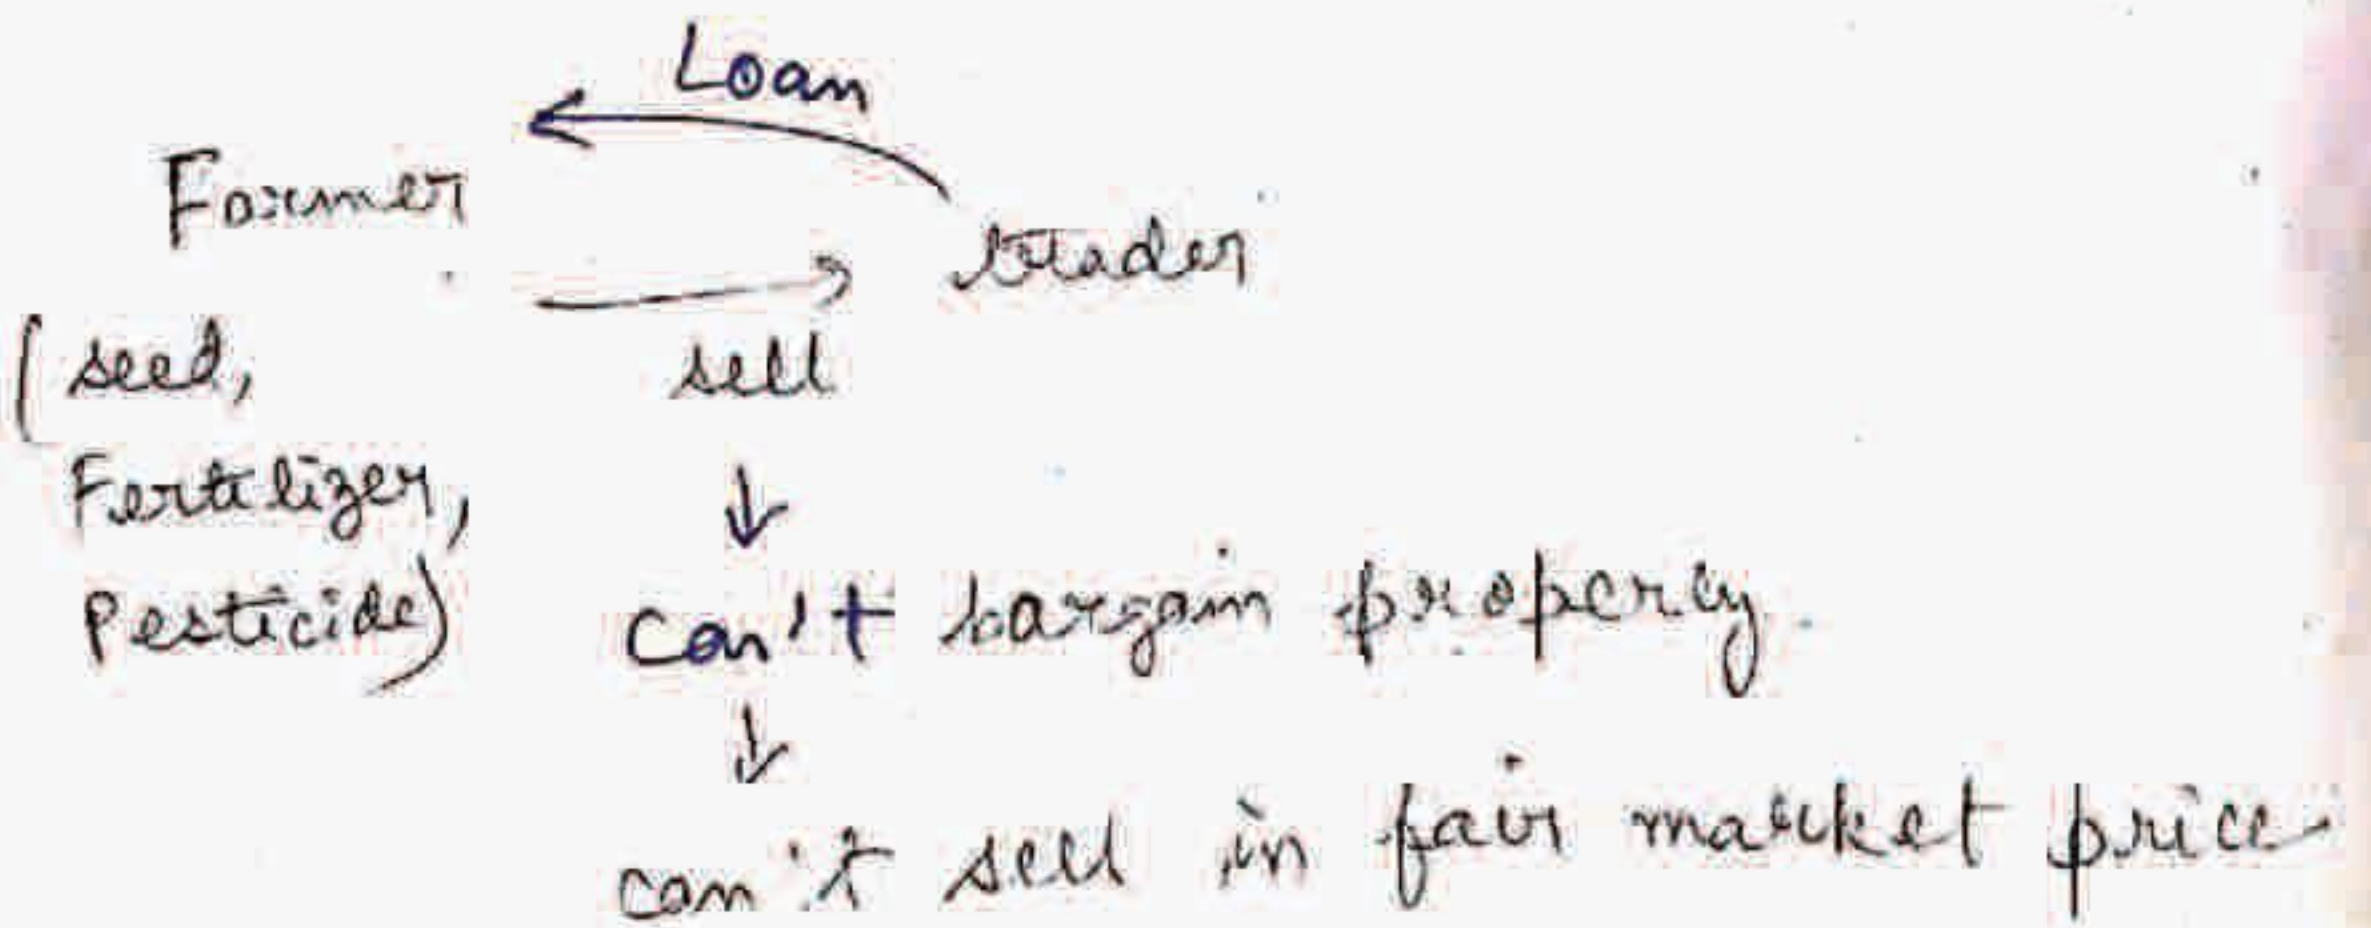 Loan
Farmer
trader
(seed,
sell
Fertilizer,
Pesticide)
can't bargain properly.
can't sell in fair market price